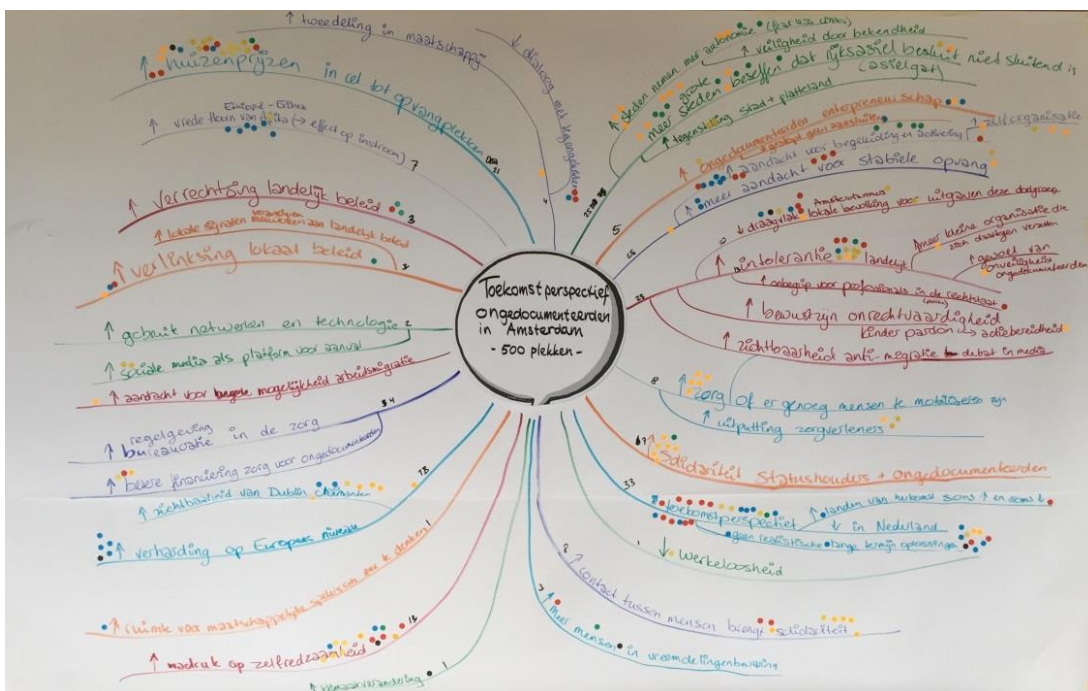 Toekomstperspectief
ongedocumenteerden
in Amsterdam
- 500 plekken -
↑ tweedeling in maatschappij
↓ dialoog met
4
↑ huizenprijzen in cel tot opvangplekken
21
Ethiopië - Eritrea
↑ vrede Hoorn van Afrika (→ effect op instroom)
7
↑ verrechtsing landelijk beleid
3
↑ lokale signalen aan landelijk beleid
↑ verlinksing lokaal beleid
2
↑ gebruik netwerken en technologie
2
↑ sociale media als platform voor aanval
↑ aandacht voor mogelijkheid arbeidsmigratie
↑ regelgeving
bureaucratie in de zorg
4
↑ betere financiering zorg voor ongedocumenteerden
↑ zichtbaarheid van Dublin Claimanten
↑ verharding op Europees niveau
13
↑ ruimte voor maatschappelijke spelers om mee te denken
1
↑ nadruk op zelfredzaamheid
13
↑ klimaatverandering
1
↑ steden nemen meer autonomie
↑ veiligheid door bekendheid
↑ meer grote steden beseffen dat rijksasiel besluit niet sluitend is
(asielgat)
↑ tegenstelling stad + platteland
↑ ongedocumenteerden entrepreneurschap
5
↑ zelforganisatie
↑ aandacht voor begeleiding en activering
↑ meer aandacht voor stabiele opvang
25
Amsterdamse
↓ draagvlak lokale bevolking voor uitgaven deze doelgroep
↑ meer kleine organisatie die
zich daartegen verzetten
↑ intolerantie landelijk
↑ gevoel van
onveiligheid
ongedocumenteerden
↑ onbegrip voor professionals in de rechtstaat
23
↑ bewustzijn onrechtvaardigheid
kinder pardon → actiebereidheid
↑ zichtbaarheid anti-migratie debat in media
8
↑ zorg of er genoeg mensen te mobiliseren zijn
↑ uitputting zorgverleners
7
↑ solidariteit statushouders + ongedocumenteerden
33
? toekomstperspectief
↑ landen van herkomst soms ↑ en soms ↓
↓ in Nederland
geen realistische lange termijn oplossingen
1
↓ werkeloosheid
8
↑ contact tussen mensen brengt solidariteit
7
↑ meer mensen in vreemdelingenbewaring